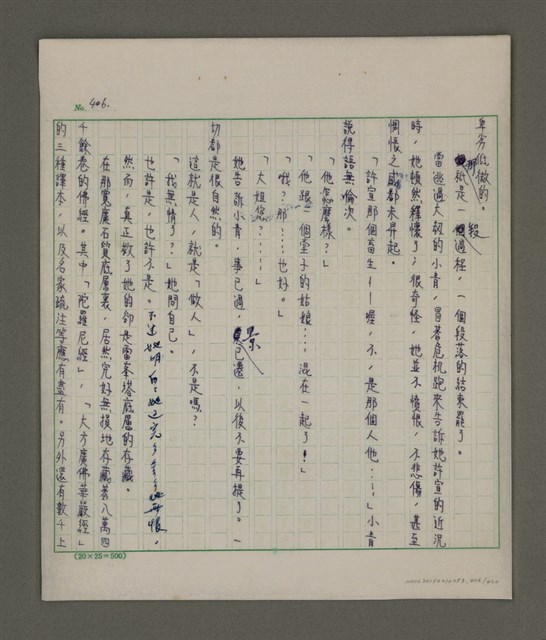 No. 406.
卑劣低做的。
那祇是一段過程，一個段落的結束罷了。
當逃過大刼的小青，冒著危机跑來告訴她許宣的近況
時，她頓然釋懷了；很奇怪，她並不憤恨，不悲傷，甚至
惆悵之感都未昇起。
「許宣那個畜生——喔，不，是那個人他……」小青
說得語無倫次。
「他怎麼樣？」
「他跟一個堂子的姑娘……混在一起了！」
「哦？那……也好。」
「大姐您？……」
她告訴小青，事已過，景已遷，以後不要再提了。一
切都是很自然的。
這就是人，就是「做人」，不是嗎？
「我無情了？」她問自己。
也許是，也許不是。不過她明白
然而，真正救了她的卻是雷峯塔底層的存藏。
在那寬廣石質底層裏，居然完好無損地存藏著八萬四
千餘卷的佛經。其中「陀羅尼經」，「大方廣佛華嚴經」
的三種譯本，以及名家疏注等應有盡有。另外還有數千上
(20×25=500)